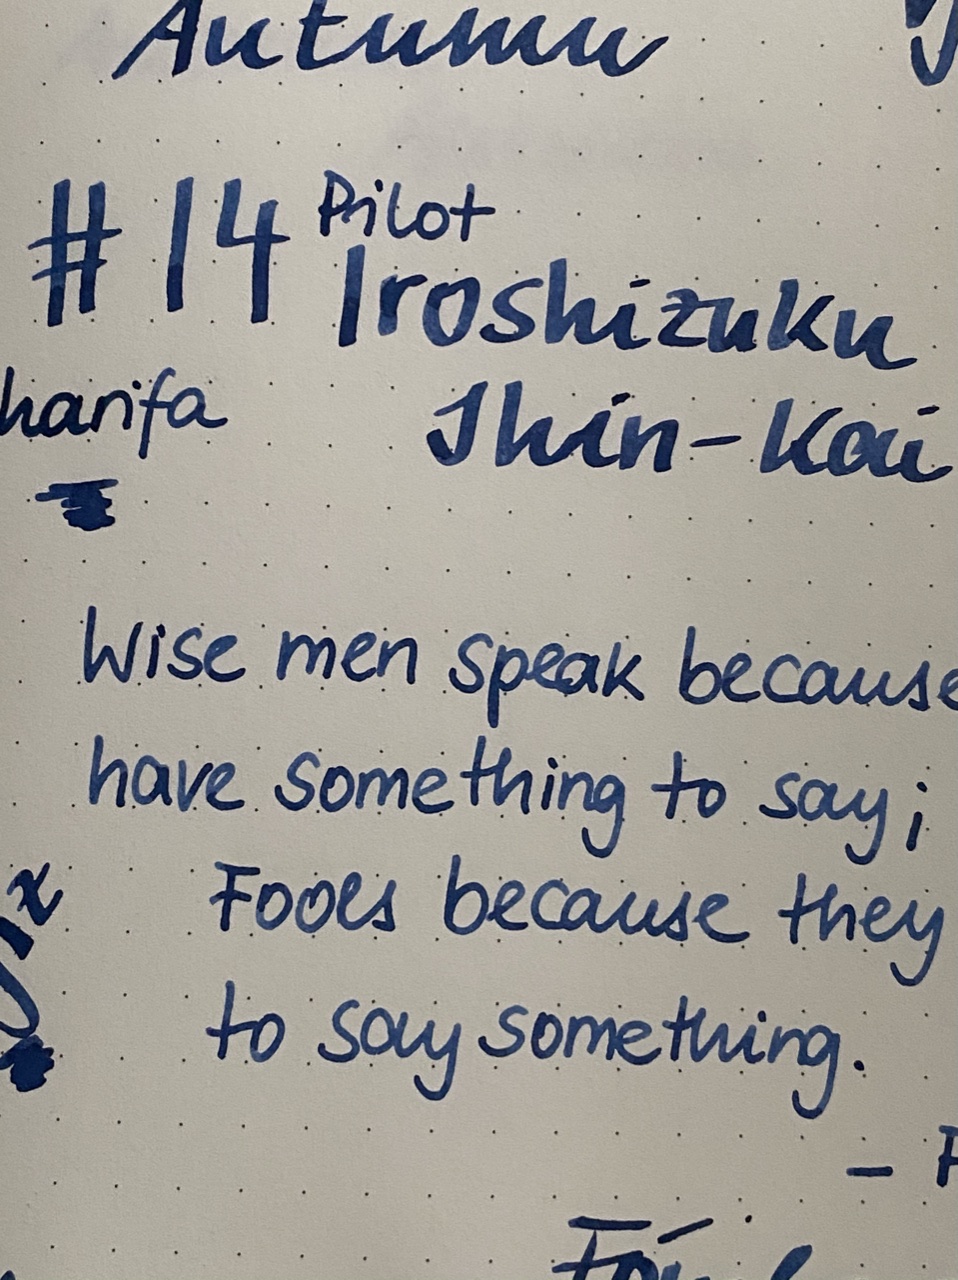 Autumn
#14 Pilot
Iroshizuku
Shin-Kai
harifa
Wise men speak because
have something to say;
Fools because they
to say something.
-